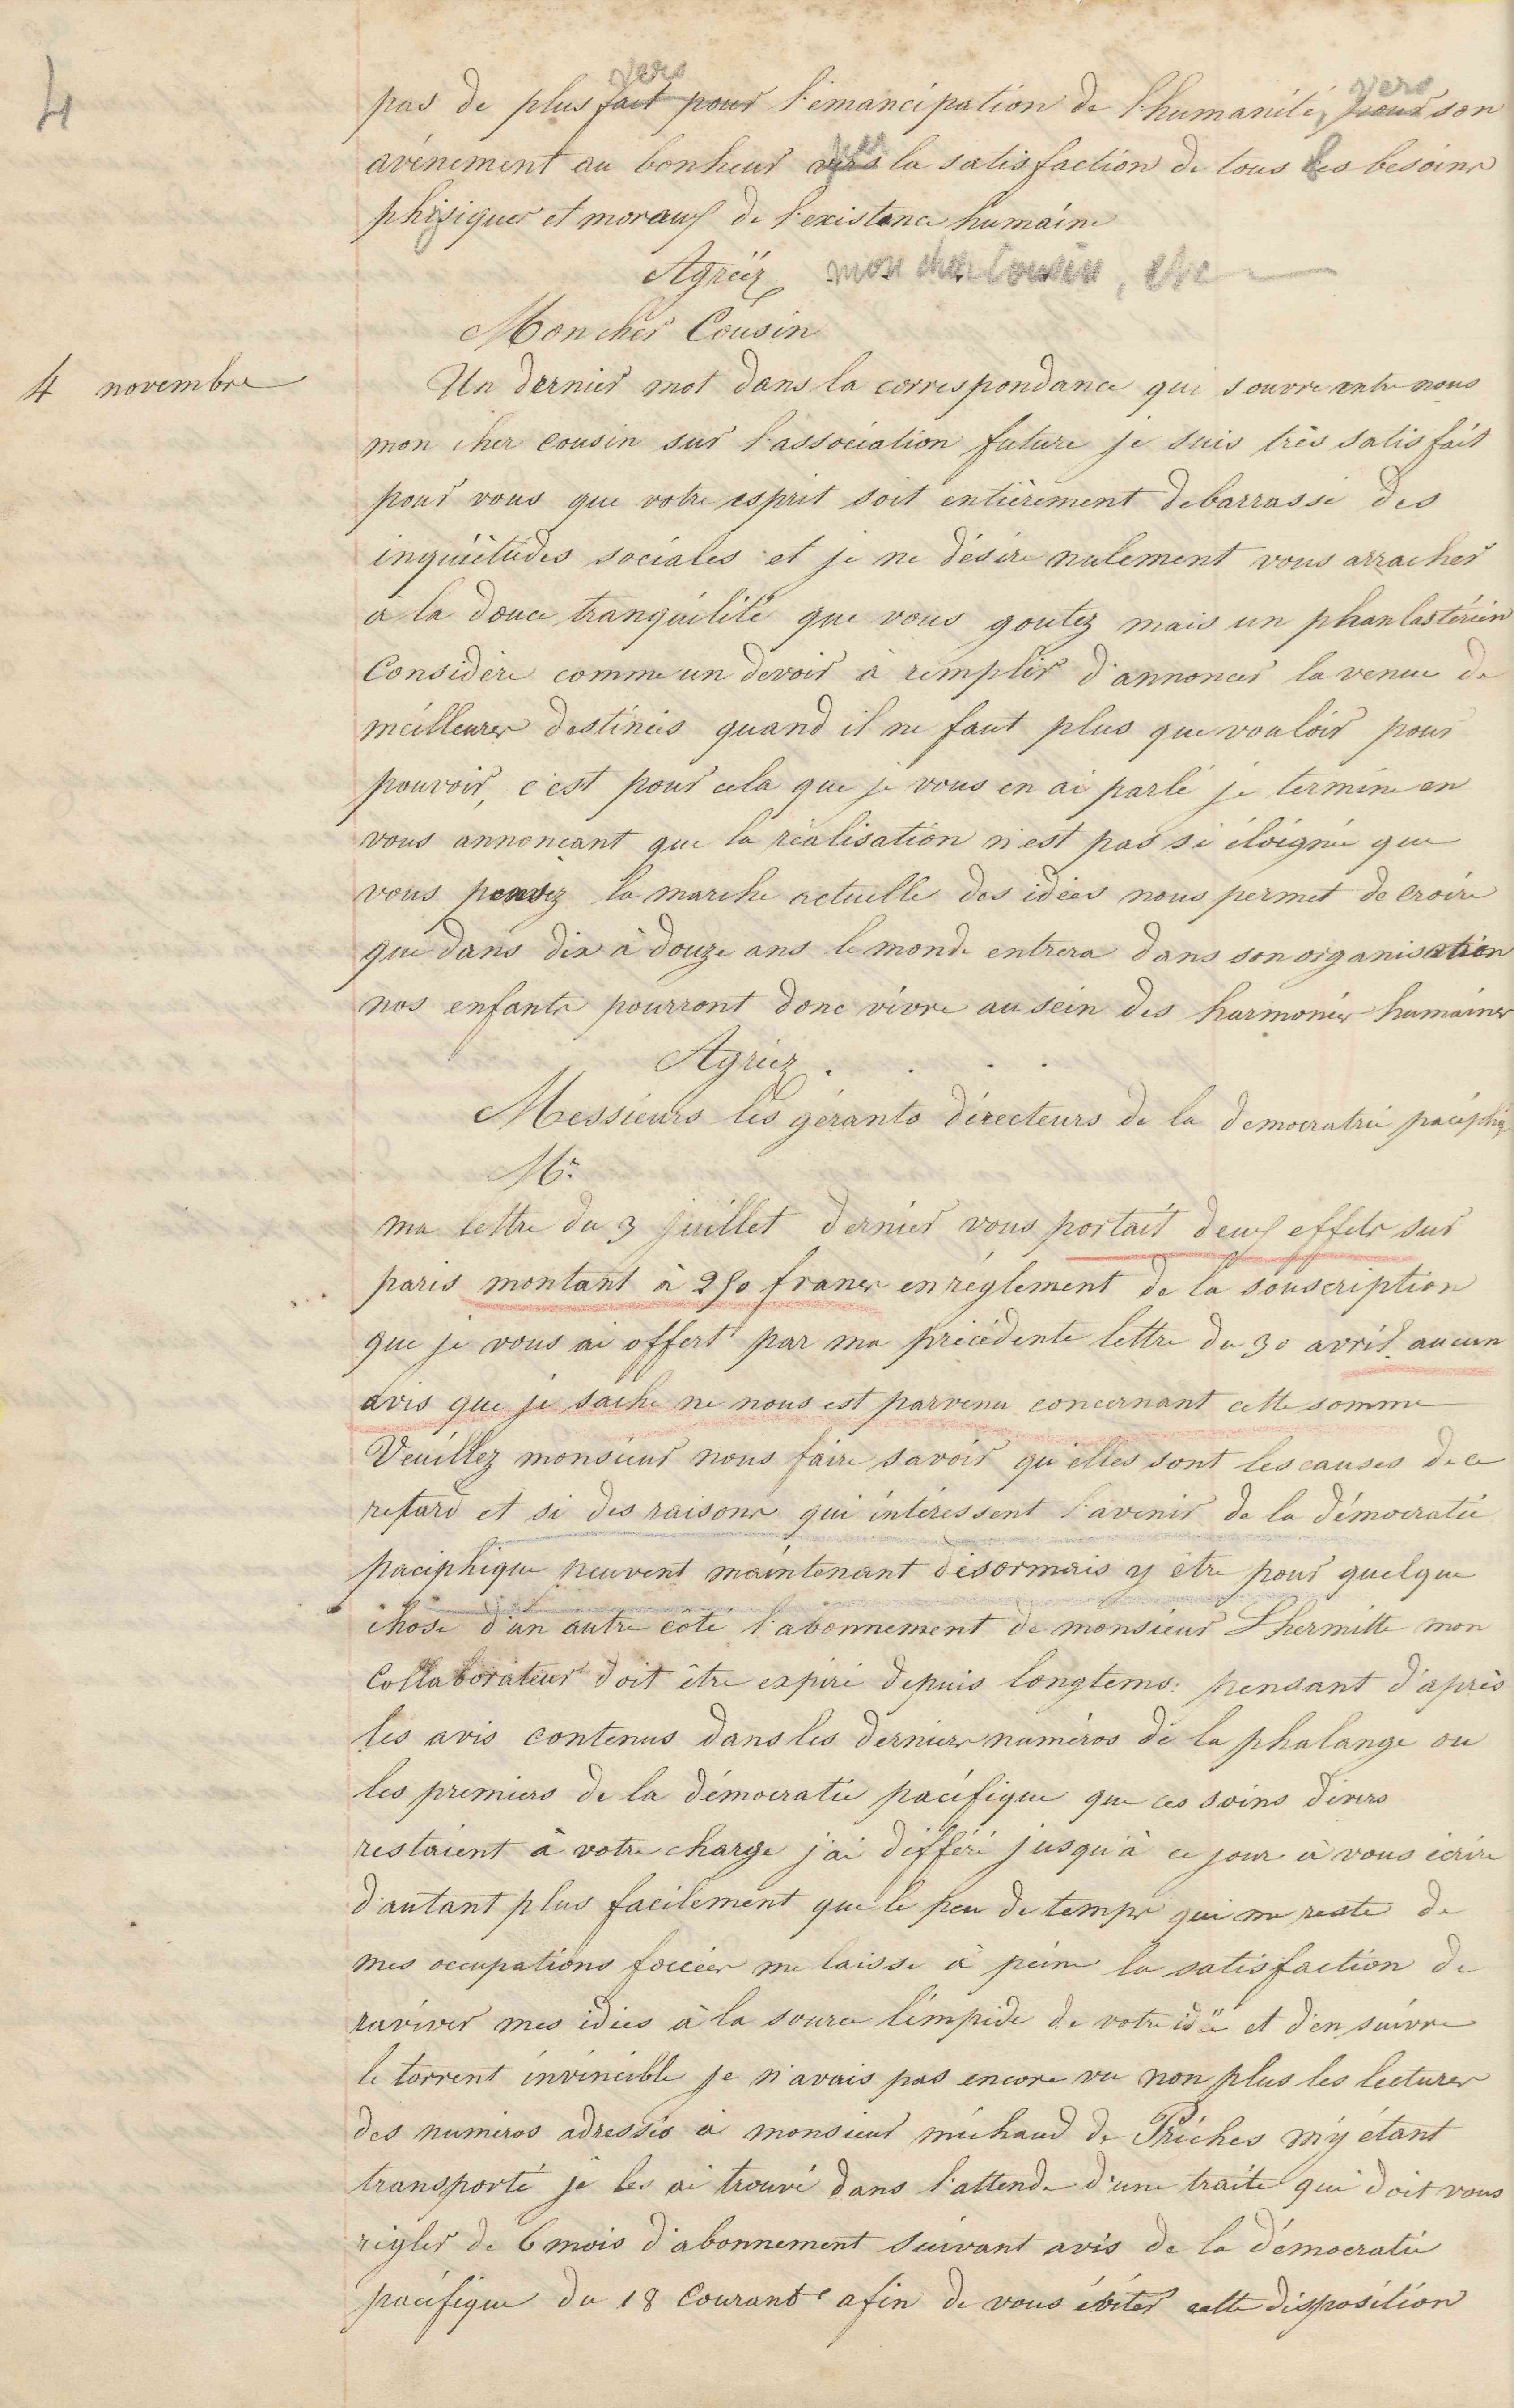 4
vers vers
pas de plus fait pour l'émancipation de l'humanité, pour son
avénement au bonheur vers la satisfaction de tous les besoins
phisiques et moraux de l'existence humaine
Agréez mon cher Cousin, etc
Mon cher Cousin
4 novembre Un dernier mot dans la correspondance qui s'ouvre entre nous
mon cher cousin sur l'association future je suis très satisfait
pour vous que votre esprit soit entièrement debarrassé des
inquiétudes sociales et je ne désire nulement vous arracher
à la douce tranquilité que vous goutez mais un phanlastérien
Considère comme un devoir à remplir d'annoncer la venue de
meilleures destinées quand il ne faut plus que vouloir pour
pouvoir, c'est pour cela que je vous en ai parlé je termine en
vous annonçant que la réalisation n'est pas si éloignée que
vous pensez la marche actuelle des idées nous permet de croire
que dans dix à douze ans le monde entrera dans son organisation
nos enfants pourront donc vivre au sein des harmonies humaines
Agréez . . . .
Messieurs les gérants directeurs de la democratie paciphiq
Mr.
ma lettre du 3 juillet dernier vous portait deux effets sur
paris montant à 250 francs en réglement de la souscription
que je vous ai offert par ma précédente lettre du 30 avril. aucun
avis que je sache ne nous est parvenu concernant cette somme
Veuillez monsieur nous faire savoir qu'elles sont les causes de ce
retard et si des raisons qui intéressent l'avenir de la démocratie
paciphique peuvent maintenant désormais y être pour quelque
chose d'un autre côté l'abonnement de monsieur Lhermitte mon
Collaborateur doit être expiré depuis longtems. pensant d'après
les avis contenus dans les derniers numéros de la phalange ou
les premiers de la démocratie pacifique que ces soins divers
restaient à votre charge j'ai différé jusqu'à ce jour à vous écrire
d'autant plus facilement que le peu de temps qui me reste de
mes occupations forcées me laisse à peine la satisfaction de
raviver mes idées à la source limpide de votre idée et d'en suivre
le torrent invincible je n'avais pas encore vu non plus les lectures
des numéros adressés à monsieur michaud de Prîches m'y étant
transporté je les ai trouvé dans l'attende d'une traite qui doit vous
régler de 6 mois d'abonnement suivant avis de la démocratie
pacifique du 18 Courant afin de vous éviter cette disposition